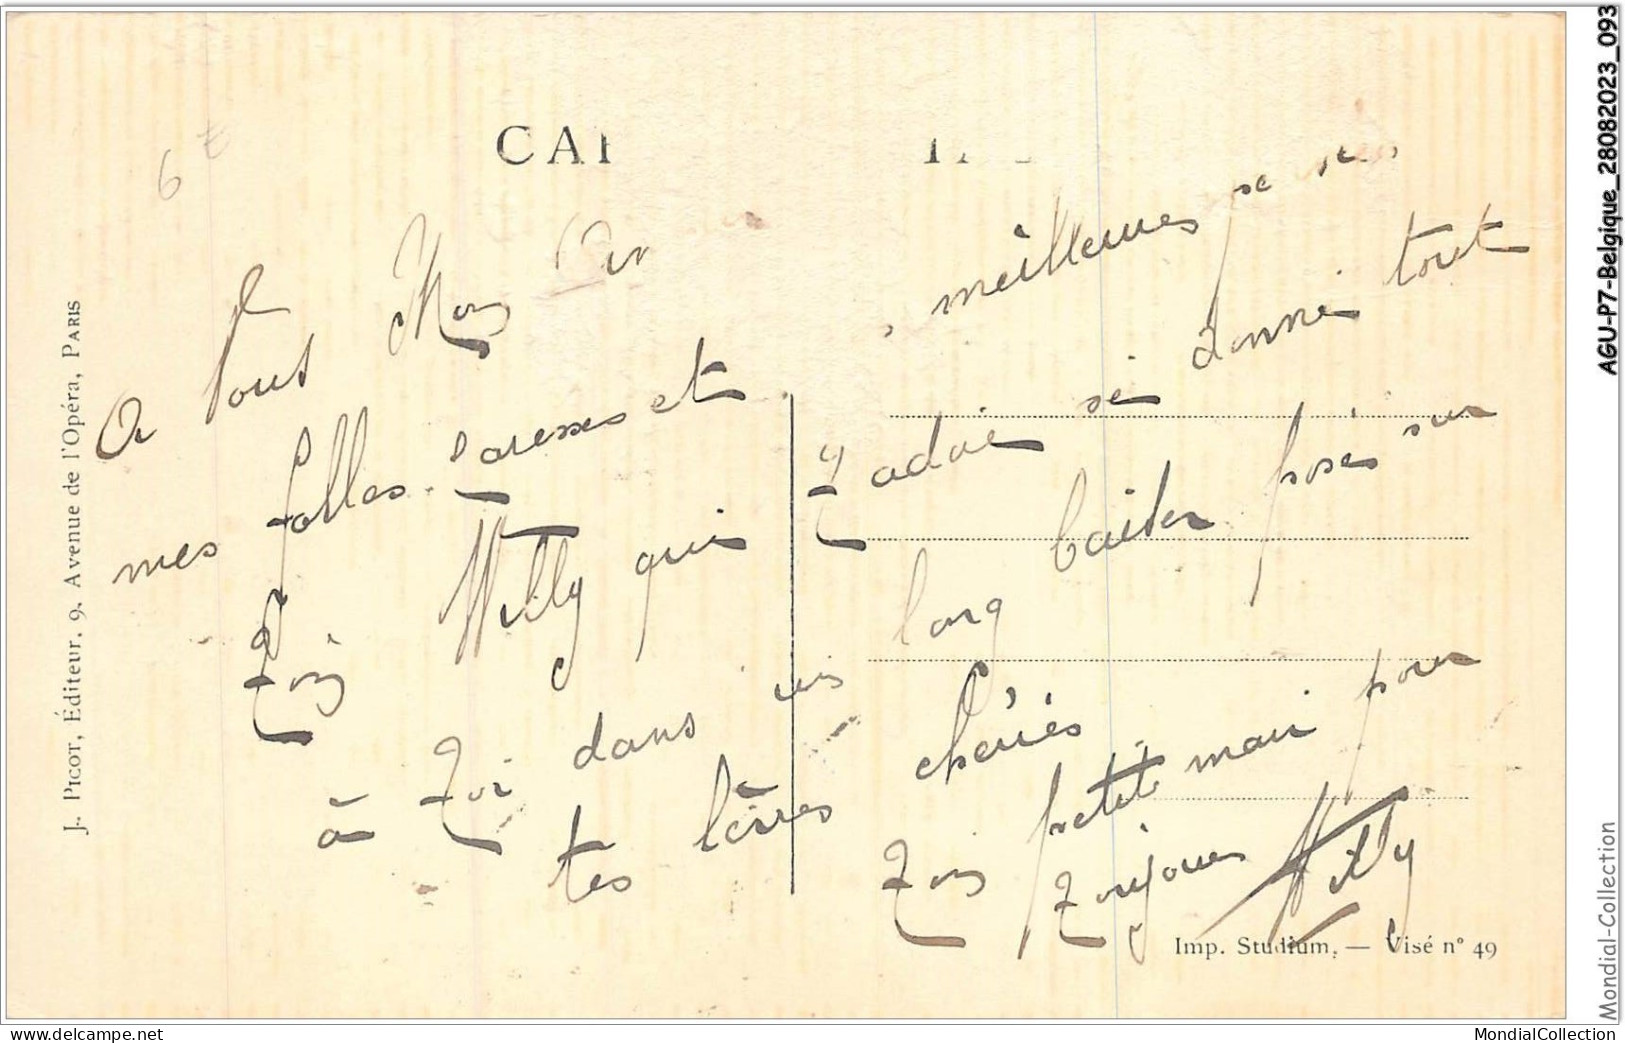 CA
J. PICOT, Éditeur. 9. Avenue de l'Opéra, PARIS
6
A Tous Mon
mes folles Caresses et
Ton Willy qui
à Toi dans un
tes lèvres
meilleures
T'adore sé donné tout
long baiser posé sur
chéries
Ton petit mari pour
Toujours Willy
Imp. Studium. — Visé n° 49
AGU-P7-Belgique_28082023_093
Mondial-Collection
www.delcampe.net
MondialCollection